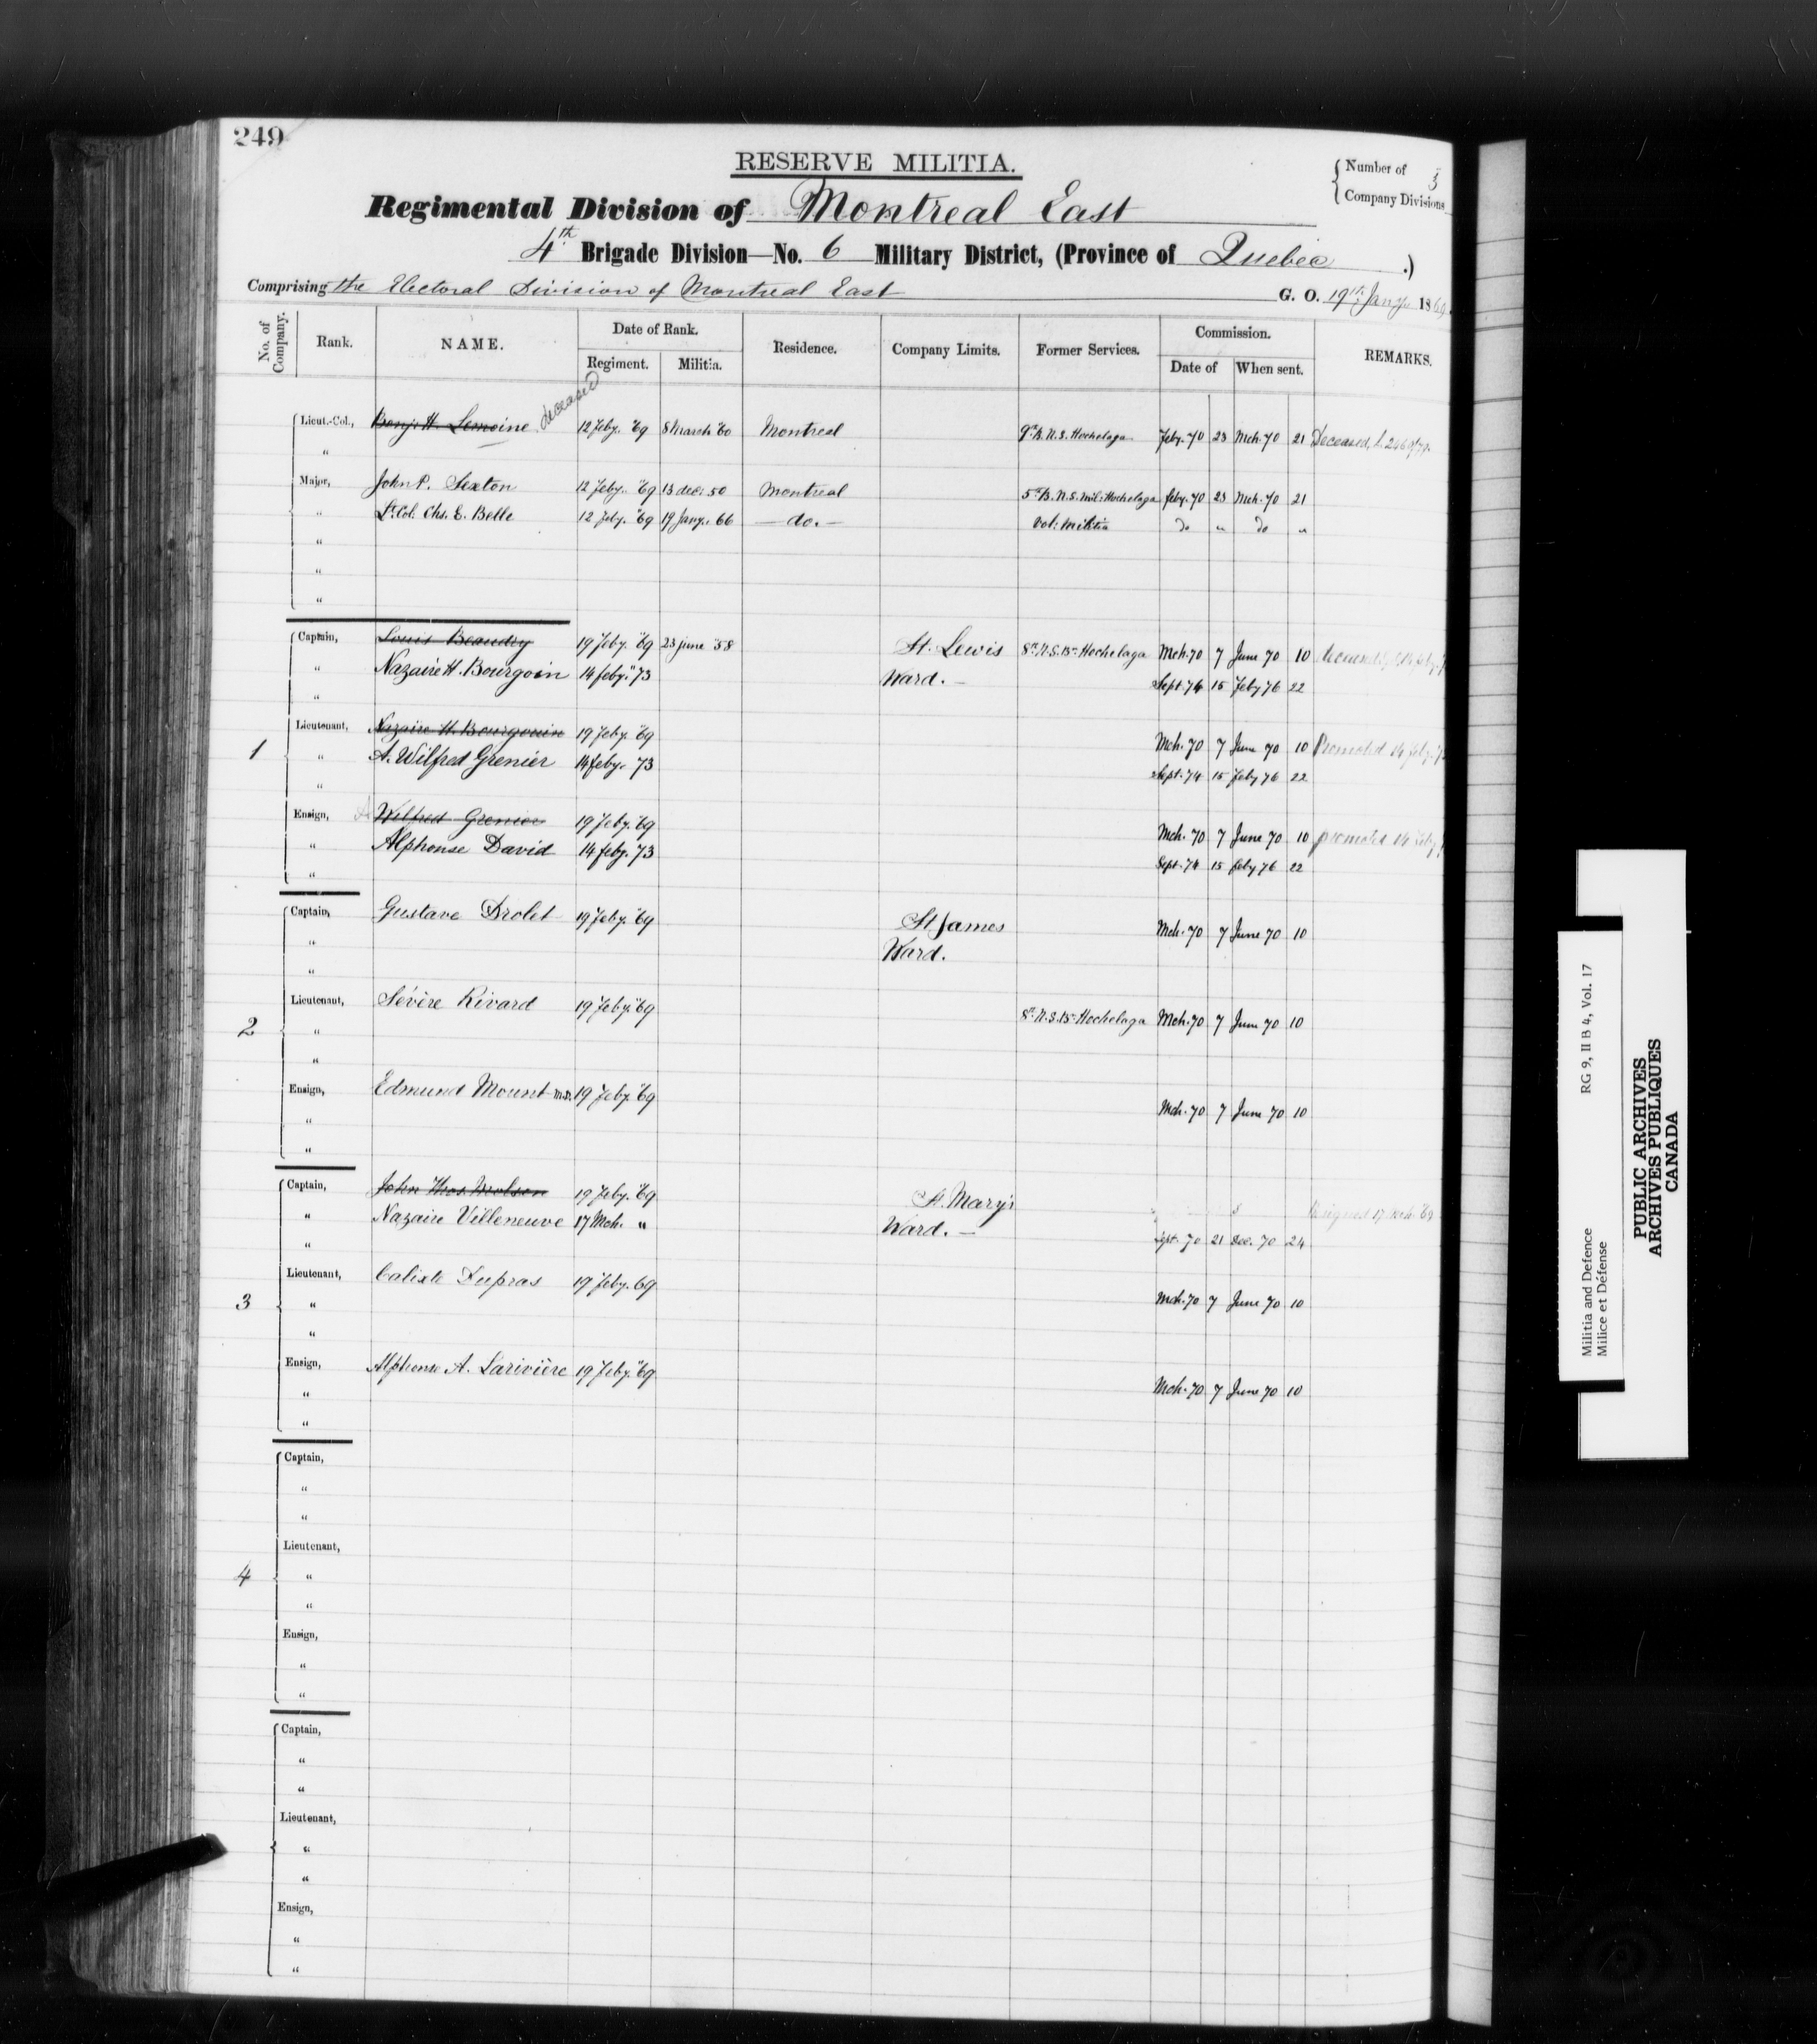 249
RESERVE MILITIA.
Number of 3
Company Divisions
Regimental Division of Montreal East
4th Brigade Division—No. 6 Military District, (Province of Quebec .)
Comprising the Electoral Division of Montreal East G. O. 19th Jany 1869.
No. of Company. Rank. NAME. Date of Rank. Residence. Company Limits. Former Services. Commission. REMARKS.
Regiment. Militia. Date of When sent.
Lieut.-Col., Benj. H. Lemoine. deceased 12 Feby. "69 8 March "60 Montreal 9th B. N. S. Hochelaga Feby. 70 23 Mch. 70 21 Deceased,
"
Major, John P. Sexton 12 Feby. "69 13 dec: 50 Montreal 5th B. N. S. Mil: Hochelaga feby. 70 23 Mch. 70 21
" Lt. Col. Chs. E. Belle 12 Feby. "69 19 Jany. 66 — do. — Vol: Militia do " do "
"
"
"
Captain, Louis Beaudry 19 Feby. "69 23 june "58 St. Lewis 8th N. S. Bn Hochelaga Mch. 70 7 June 70 10
" Nazaire H. Bourgoin 14 feby. "73 Ward. — Sept. 74 15 Feby 76 22
"
1
Lieutenant, Nazaire H. Bourgouin 19 Feby. "69 Mch. 70 7 June 70 10 Promoted 14 feby.
" A. Wilfred Grenier 14 feby. 73 Sept. 74 15 Feby 76 22
"
Ensign, A. Wilfred Grenier 19 Feby. "69 Mch. 70 7 June 70 10 promoted 14 feby
" Alphonse David 14 feby. "73 Sept. 74 15 feby 76 22
"
Captain, Gustave Drolet 19 Feby. "69 St James Mch. 70 7 June 70 10
" Ward.
"
2
Lieutenant, Sévère Rivard 19 Feby. "69 8th N. S. Bn Hochelaga Mch. 70 7 June 70 10
"
"
Ensign, Edmund Mount M.D. 19 Feby. "69 Mch. 70 7 June 70 10
"
"
Captain, John Thos. Molson 19 Feby. "69 St. Mary's Resigned 17 Mch. 69
" Nazaire Villeneuve 17 Mch. " Ward. — Sept. 70 21 Dec. 70 24
"
3
Lieutenant, Calixte Dupras 19 Feby. 69 Mch. 70 7 June 70 10
"
"
Ensign, Alphonse A. Larivière 19 Feby. "69 Mch. 70 7 June 70 10
"
"
Captain,
"
"
4
Lieutenant,
"
"
Ensign,
"
"
Captain,
"
"
Lieutenant,
"
"
Ensign,
"
"
Militia and Defence RG 9, II B 4, Vol. 17
Milice et Défense
PUBLIC ARCHIVES
ARCHIVES PUBLIQUES
CANADA